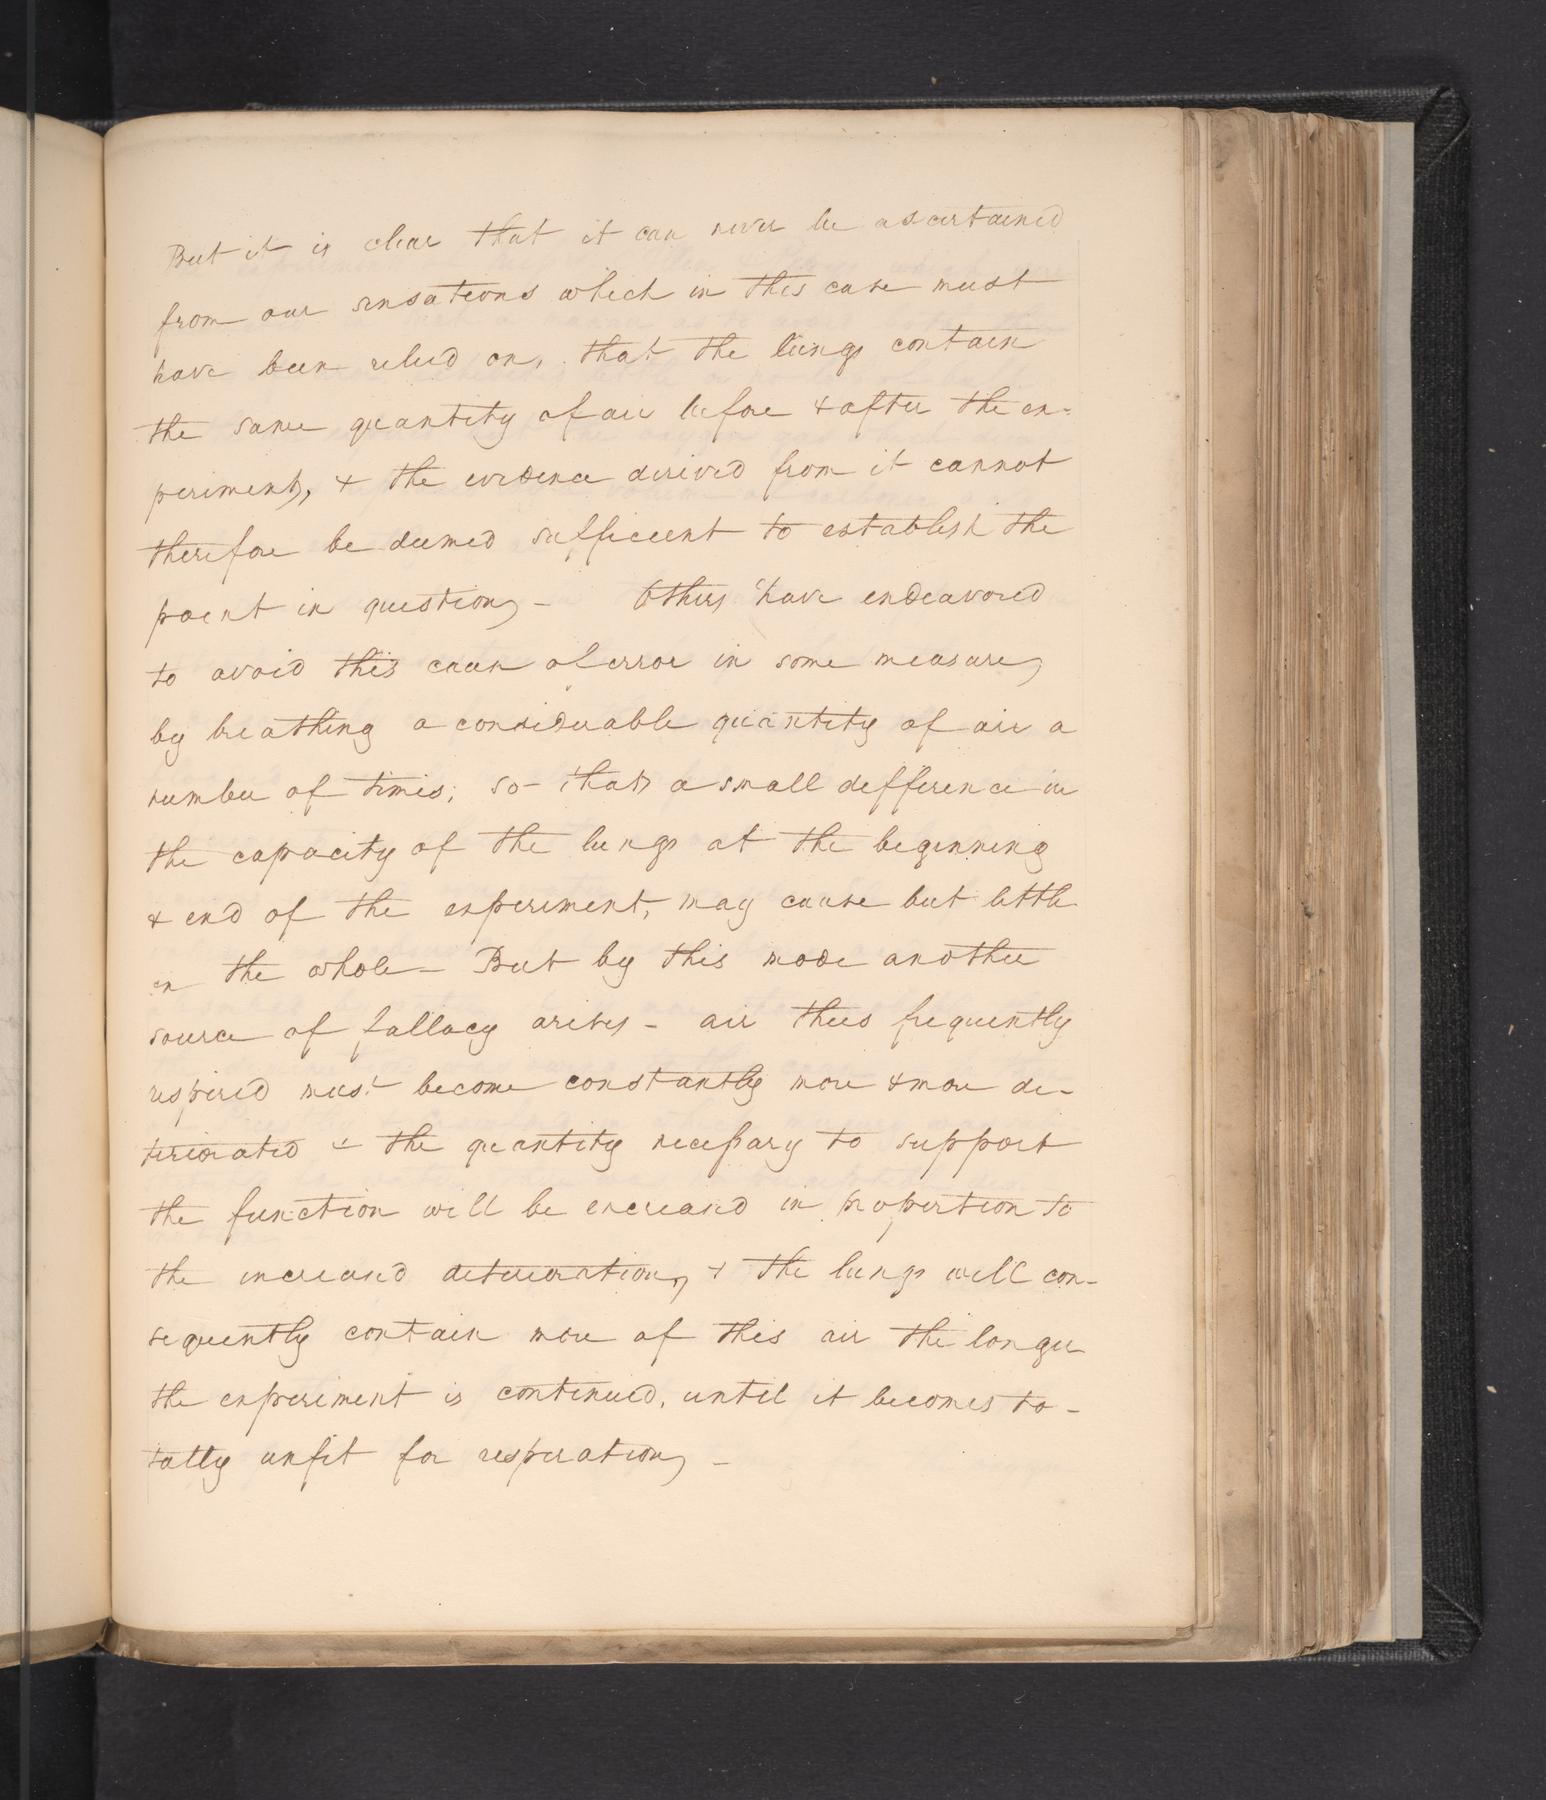 But it is clear that it can never be ascertained
from our sensations which in this case must
have been relied on, that the lungs contain
the same quantity of air before & after the ex-
periment, & the evidence derived from it cannot
therefore be deemed sufficient to establish the
point in question, - Others have endeavored
to avoid this cause of error in some measure,
by breathing a considerable quantity of air a
number of times; so that a small difference in
the capacity of the lungs at the beginning
& end of the experiment, may cause but little
on the whole - But by this mode another
source of fallacy arises - air thus frequently
respired must become constantly more & more de-
teriorated & the quantity necessary to support
the function will be encreased in proportion to
the increased deterioration, & the lungs will con-
sequently contain more of this air the longer
the experiment is continued, until it becomes to-
tally unfit for respiration, -